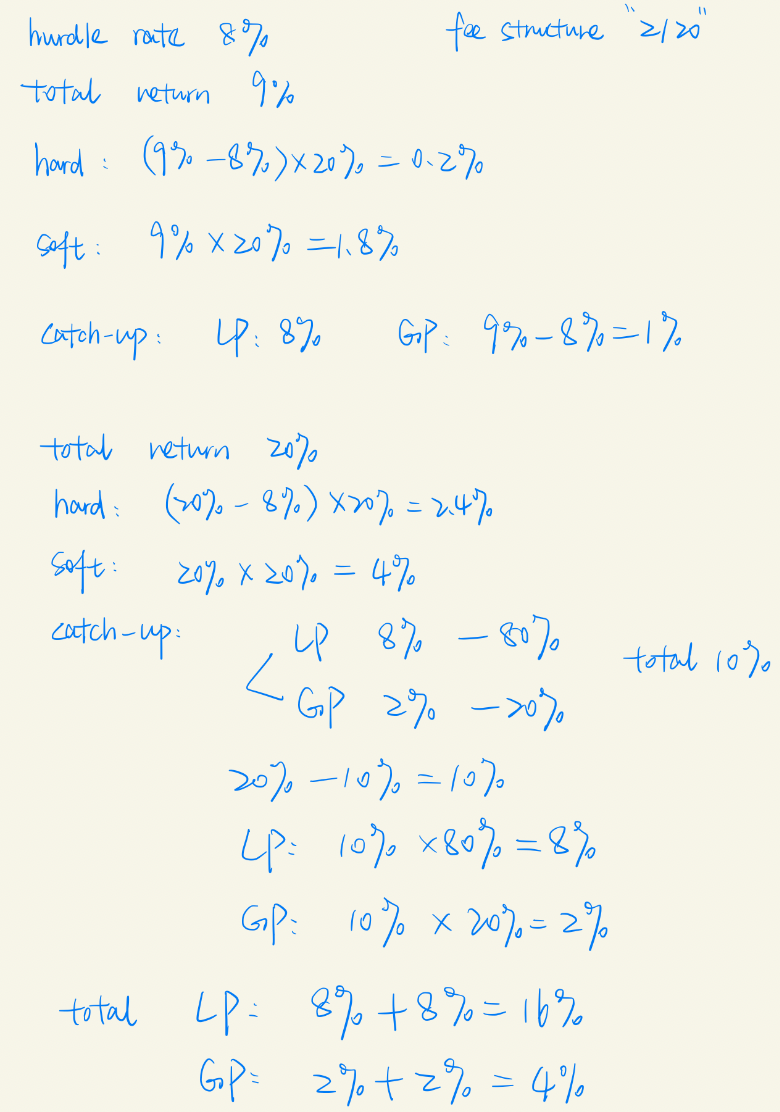 hurdle rate 8% fee structure "2/20"
total return 9%
hard: (9% - 8%) × 20% = 0.2%
soft: 9% × 20% = 1.8%
catch-up: LP: 8% GP: 9% - 8% = 1%
total return 20%
hard: (20% - 8%) × 20% = 2.4%
soft: 20% × 20% = 4%
catch-up: LP 8% - 80%
total 10%
GP 2% - 20%
20% - 10% = 10%
LP: 10% × 80% = 8%
GP: 10% × 20% = 2%
total LP: 8% + 8% = 16%
GP: 2% + 2% = 4%